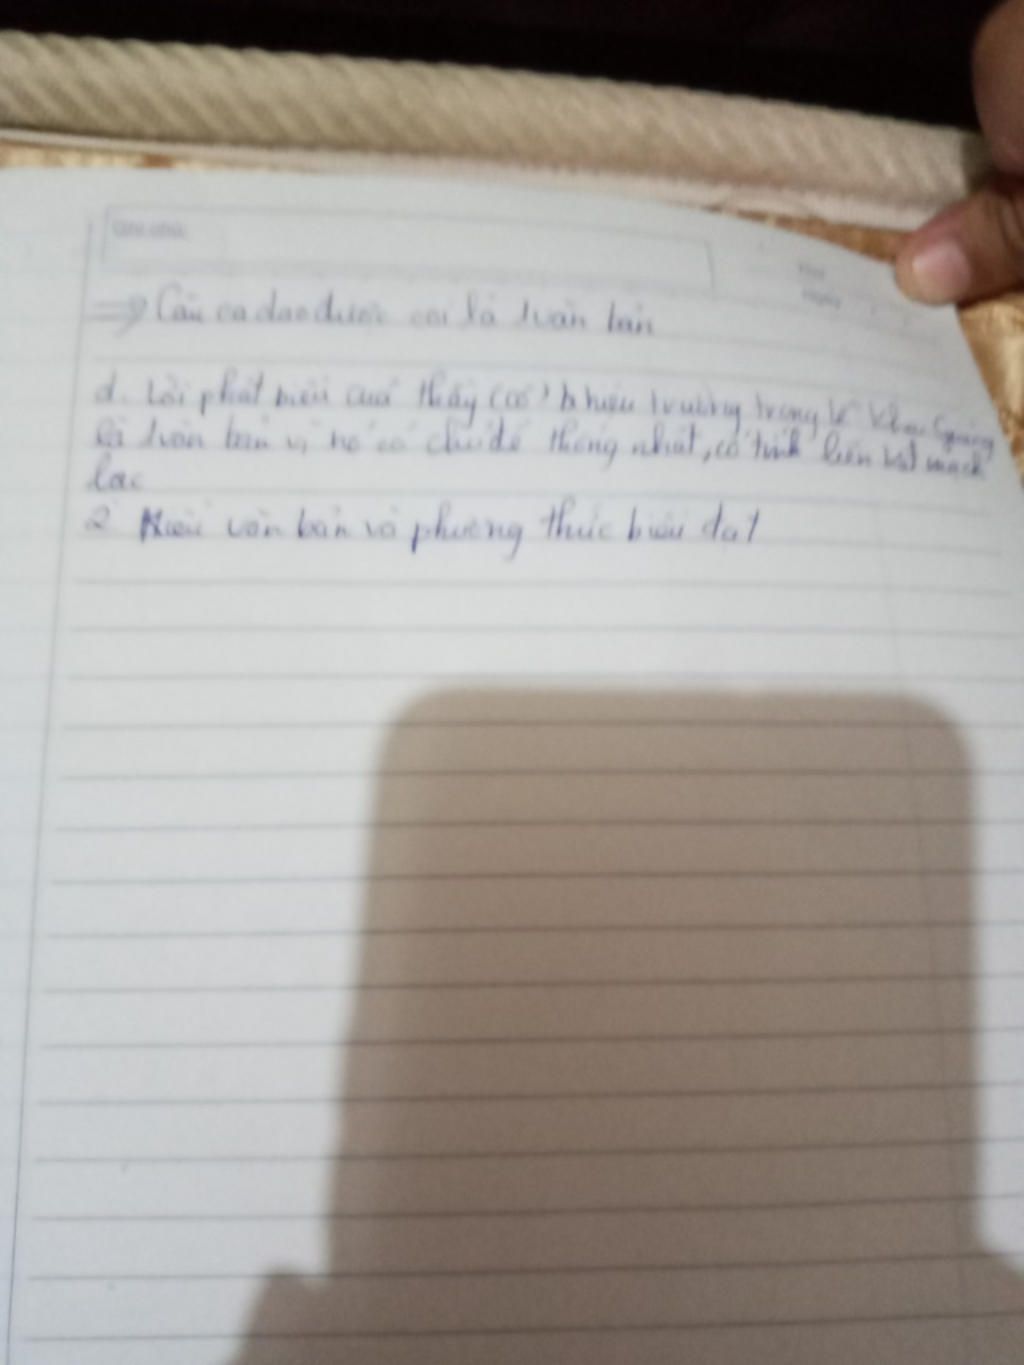 ⇒ Câu ca dao được coi là văn bản
d. Lời phát biểu của thầy (cô) hiệu trưởng trong lễ khai giảng
là văn bản vì nó có chủ đề thống nhất, có tính liên kết mạch
lạc
2 Kiểu văn bản và phương thức biểu đạt